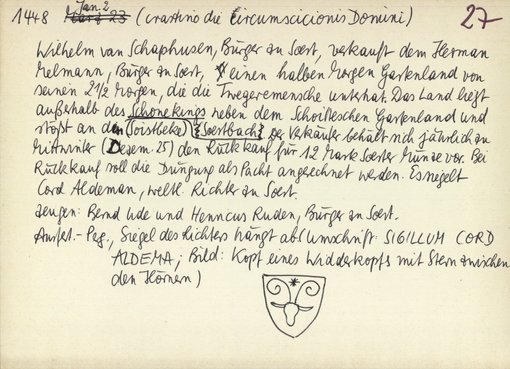 1448 Jan. 2 (crastino die Circumscicionis Domini) 27
Wilhelm van Schaphusen, Bürger zu Soest, verkauft dem Herman
Melmann, Bürger zu Soest, einen halben Morgen Gartenland von
seinen 2 1/2 Morgen, die die Twegeremensche unterhat. Das Land liegt
außerhalb des Schonekings neben dem Schoitleschen Gartenland und
stößt an den (Soistbeke) {Soestbach} der Verkäufer behält sich jährlich zu
Mittwinter (Dezem. 25) den Rückkauf für 12 Mark Soester Münze vor. Bei
Rückkauf soll die Düngung als Pacht angerechnet werden. Es siegelt
Cord Aldeman, weltl. Richter zu Soest.
Zeugen: Bernd Ude und Henricus Ruden, Bürger zu Soest.
Ausfert.- Peg., Siegel des Richters hängt ab (Umschrift: SIGILLUM CORD
ALDEMA; Bild: Kopf eines Widderkopfs mit Stern zwischen
den Hörnern)